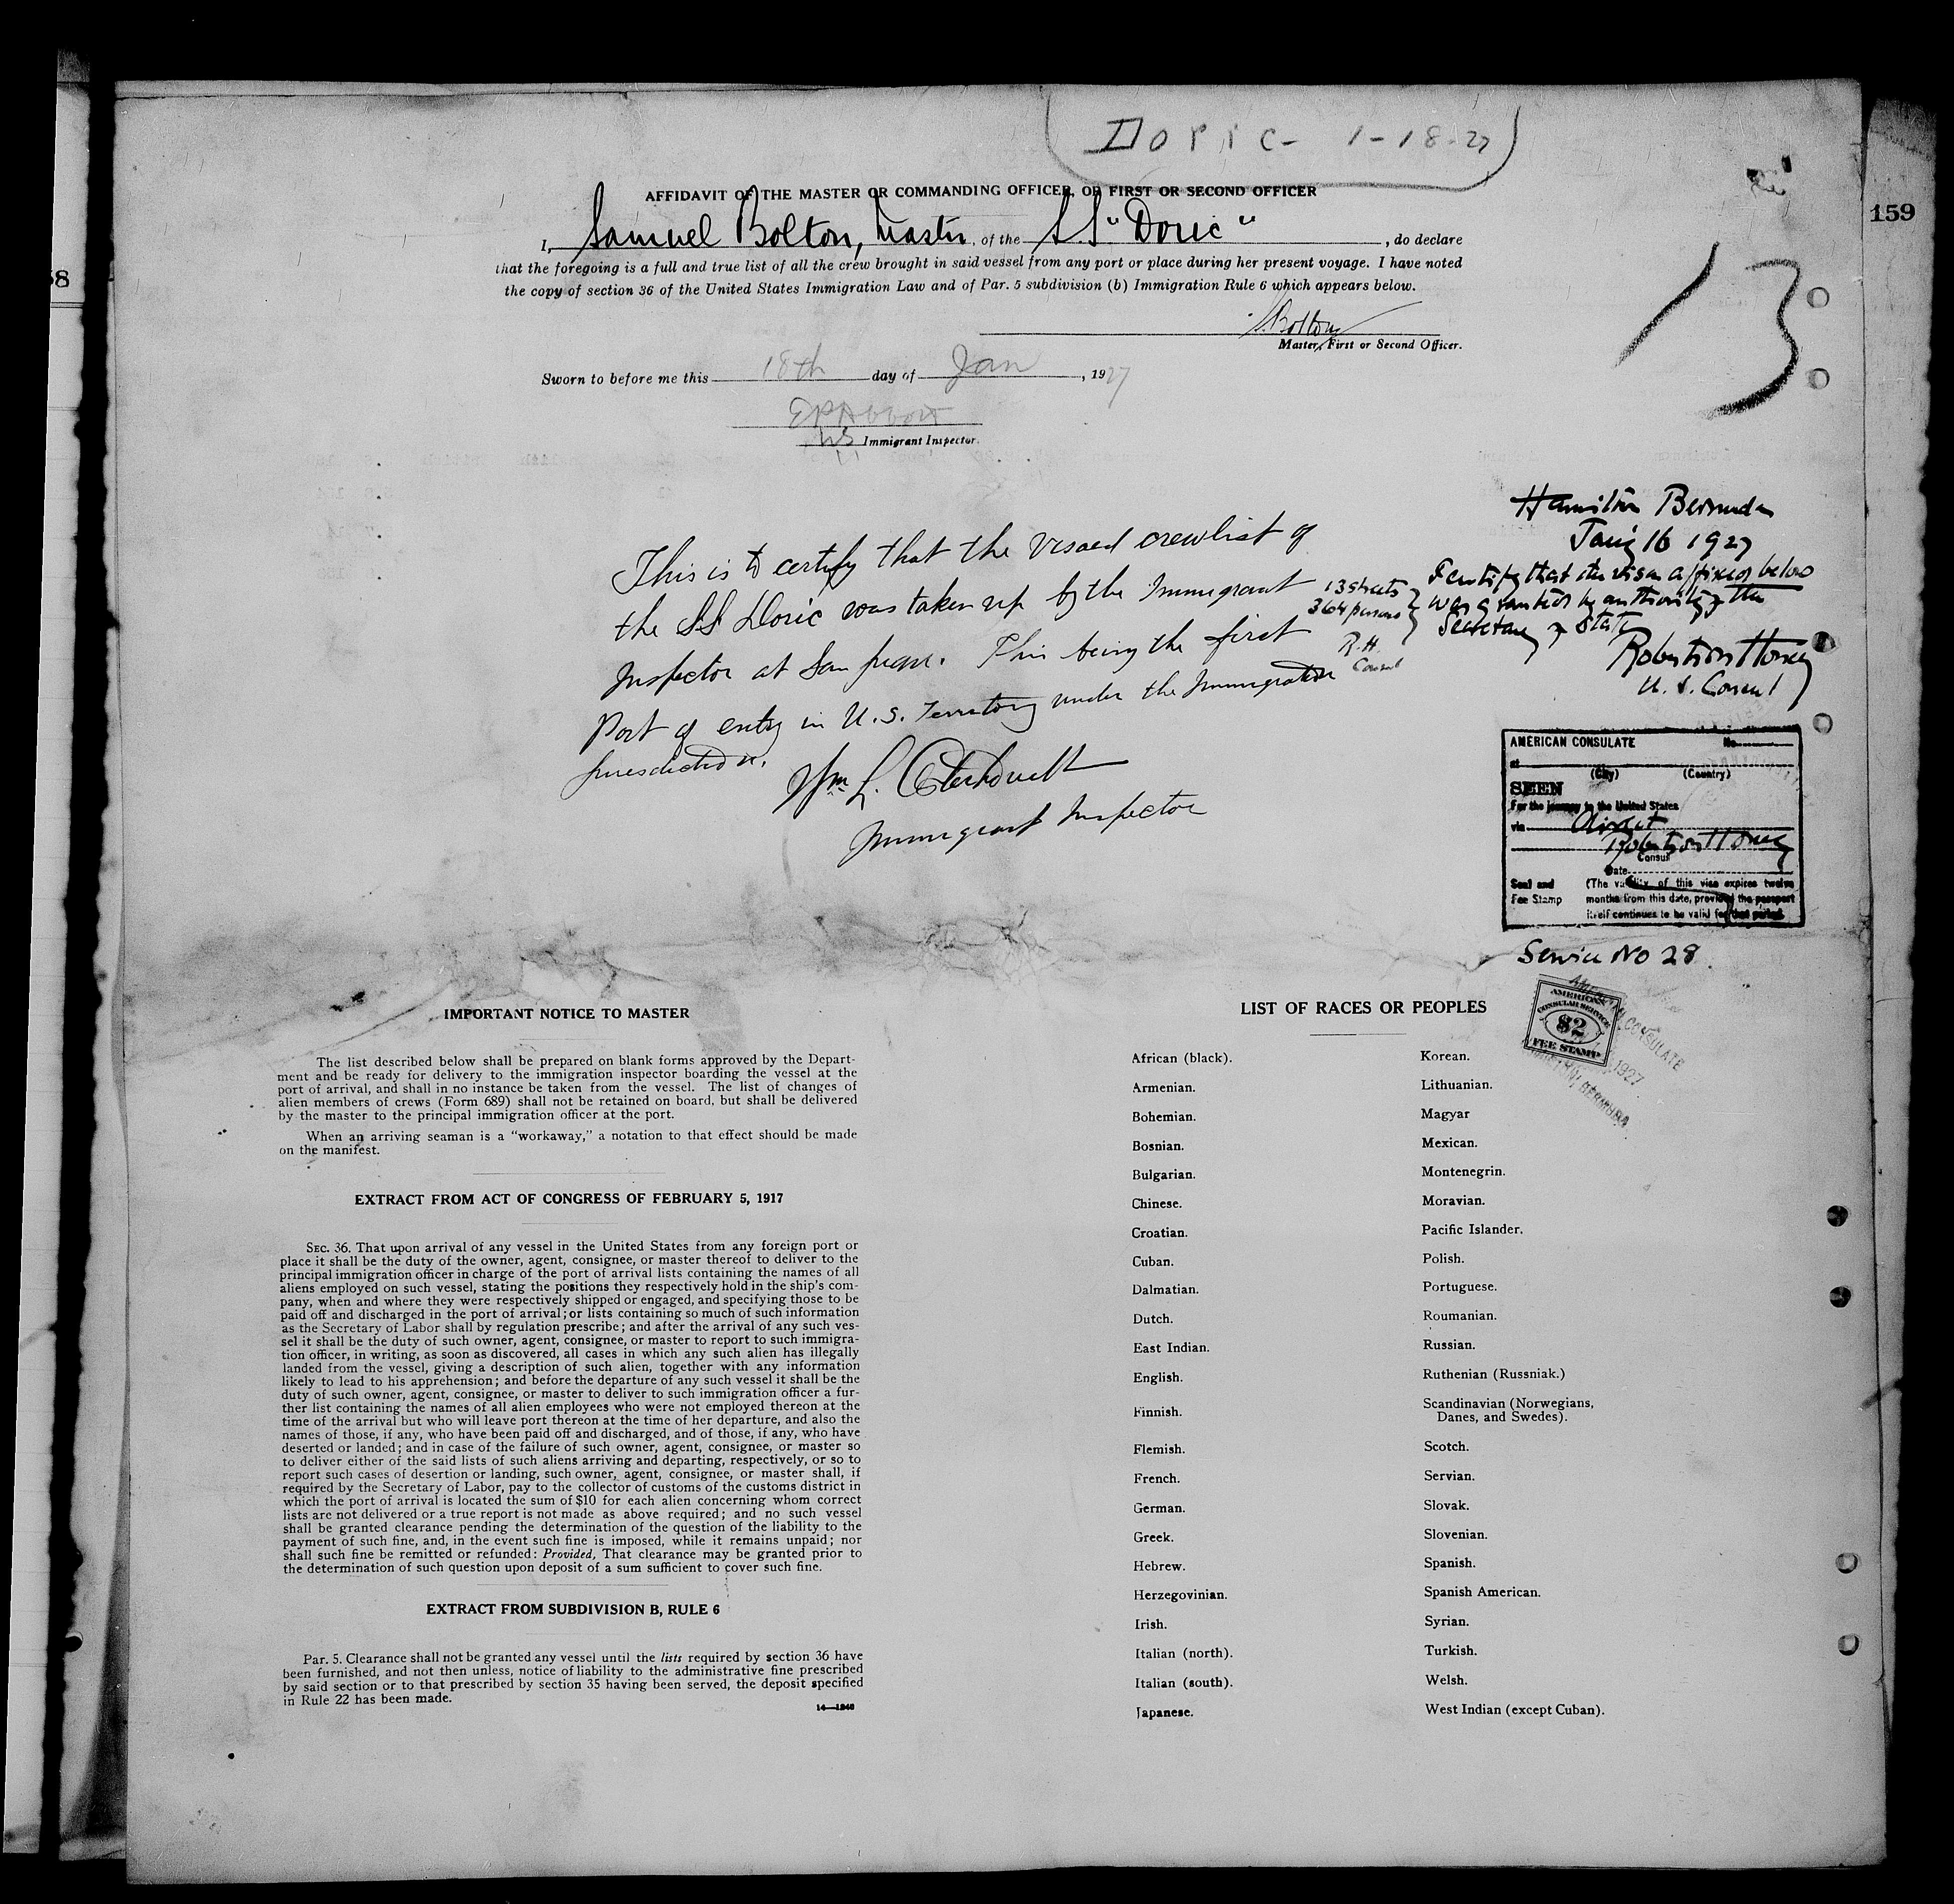 DORIC - 1-18-27
159
58
13
AFFIDAVIT OF THE MASTER OR COMMANDING OFFICER, OR FIRST OR SECOND OFFICER
I, Samuel Bolton, Master, of the S.S. "Doric", do declare
that the foregoing is a full and true list of all the crew brought in said vessel from any port or place during her present voyage. I have noted
the copy of section 36 of the United States Immigration Law and of Par. 5 subdivision (b) Immigration Rule 6 which appears below.
S. Bolton
Master, First or Second Officer.
Sworn to before me this 18th day of Jan, 1927
E P Abbott
US Immigrant Inspector.
This is to certify that the visaed crewlist of
the SS Doric was taken up by the Immigrant
Inspector at San Juan. This being the first
Port of entry in U.S. Territory under the Immigration
jurisdiction.
Wm L.
Immigrant Inspector
13 sheets
364 persons
R.H.
Consul
Hamilton Bermuda
Jan'y 16 1927
I certify that the visa affixed below
was granted by authority of the
Secretary of State
Robertson Honey
U.S. Consul
AMERICAN CONSULATE No
at
(City) (Country)
SEEN
For the journey to the United States
via direct
Robertson Honey
Consul
Date
Seal and (The validity of this visa expires twelve
Fee Stamp months from this date, provided the passport
itself continues to be valid for that period.
Service No 28.
AMERICAN
CONSULAR SERVICE
$2
FEE STAMP
AMERICAN CONSULATE
1927
BERMUDA
IMPORTANT NOTICE TO MASTER
The list described below shall be prepared on blank forms approved by the Depart-
ment and be ready for delivery to the immigration inspector boarding the vessel at the
port of arrival, and shall in no instance be taken from the vessel. The list of changes of
alien members of crews (Form 689) shall not be retained on board, but shall be delivered
by the master to the principal immigration officer at the port.
When an arriving seaman is a "workaway," a notation to that effect should be made
on the manifest.
EXTRACT FROM ACT OF CONGRESS OF FEBRUARY 5, 1917
SEC. 36. That upon arrival of any vessel in the United States from any foreign port or
place it shall be the duty of the owner, agent, consignee, or master thereof to deliver to the
principal immigration officer in charge of the port of arrival lists containing the names of all
aliens employed on such vessel, stating the positions they respectively hold in the ship's com-
pany, when and where they were respectively shipped or engaged, and specifying those to be
paid off and discharged in the port of arrival; or lists containing so much of such information
as the Secretary of Labor shall by regulation prescribe; and after the arrival of any such ves-
sel it shall be the duty of such owner, agent, consignee, or master to report to such immigra-
tion officer, in writing, as soon as discovered, all cases in which any such alien has illegally
landed from the vessel, giving a description of such alien, together with any information
likely to lead to his apprehension; and before the departure of any such vessel it shall be the
duty of such owner, agent, consignee, or master to deliver to such immigration officer a fur-
ther list containing the names of all alien employees who were not employed thereon at the
time of the arrival but who will leave port thereon at the time of her departure, and also the
names of those, if any, who have been paid off and discharged, and of those, if any, who have
deserted or landed; and in case of the failure of such owner, agent, consignee, or master so
to deliver either of the said lists of such aliens arriving and departing, respectively, or so to
report such cases of desertion or landing, such owner, agent, consignee, or master shall, if
required by the Secretary of Labor, pay to the collector of customs of the customs district in
which the port of arrival is located the sum of $10 for each alien concerning whom correct
lists are not delivered or a true report is not made as above required; and no such vessel
shall be granted clearance pending the determination of the question of the liability to the
payment of such fine, and, in the event such fine is imposed, while it remains unpaid; nor
shall such fine be remitted or refunded: Provided, That clearance may be granted prior to
the determination of such question upon deposit of a sum sufficient to cover such fine.
EXTRACT FROM SUBDIVISION B, RULE 6
Par. 5. Clearance shall not be granted any vessel until the lists required by section 36 have
been furnished, and not then unless, notice of liability to the administrative fine prescribed
by said section or to that prescribed by section 35 having been served, the deposit specified
in Rule 22 has been made.
14—1240
LIST OF RACES OR PEOPLES
African (black).
Armenian.
Bohemian.
Bosnian.
Bulgarian.
Chinese.
Croatian.
Cuban.
Dalmatian.
Dutch.
East Indian.
English.
Finnish.
Flemish.
French.
German.
Greek.
Hebrew.
Herzegovinian.
Irish.
Italian (north).
Italian (south).
Japanese.
Korean.
Lithuanian.
Magyar
Mexican.
Montenegrin.
Moravian.
Pacific Islander.
Polish.
Portuguese.
Roumanian.
Russian.
Ruthenian (Russniak.)
Scandinavian (Norwegians,
Danes, and Swedes).
Scotch.
Servian.
Slovak.
Slovenian.
Spanish.
Spanish American.
Syrian.
Turkish.
Welsh.
West Indian (except Cuban).